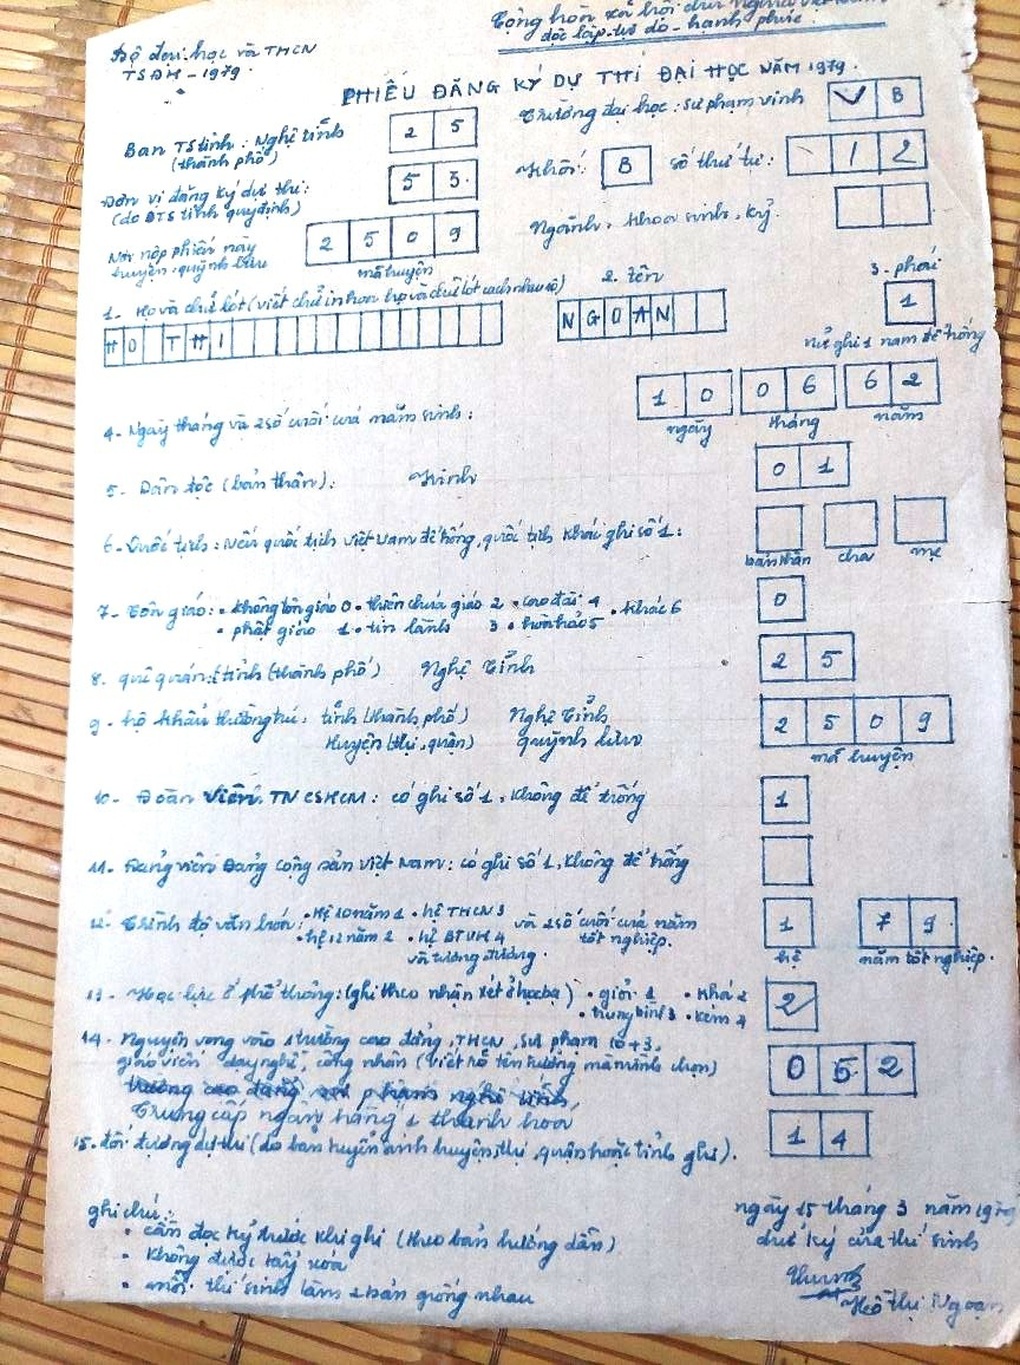 Cộng hòa xã hội chủ nghĩa Việt Nam
độc lập - tự do - hạnh phúc
Bộ đại học và THCN
TSĐH - 1979.
PHIẾU ĐĂNG KÝ DỰ THI ĐẠI HỌC NĂM 1979.
Ban TS tỉnh: Nghệ Tĩnh 2 5
(thành phố)
Trường đại học: sư phạm vinh V B
Đơn vị đăng ký dự thi: 5 3
(do BTS tỉnh quy định)
Khối: B số thứ tự: 1 2
Nơi nộp phiếu này 2 5 0 9
huyện: quỳnh lưu mã huyện
Ngành, khoa sinh, kỹ.
1. Họ và chữ lót (viết chữ in hoa họ và chữ lót cách nhau 1 ô) 2. tên 3. phái
HO THI NGOAN 1
nữ ghi 1 nam để trống
4- Ngày tháng và 2 số cuối của năm sinh: 1 0 0 6 6 2
ngày tháng năm
5- Dân tộc (bản thân): Kinh 0 1
6- Quốc tịch: Nếu quốc tịch việt nam để trống, quốc tịch khác ghi số 1:
bản thân cha mẹ
7- Tôn giáo: • không tôn giáo 0 • thiên chúa giáo 2 • cao đài 4 • khác 6 0
• phật giáo 1 • tin lành 3 • hoà hảo 5
8. quê quán: tỉnh (thành phố) Nghệ Tĩnh 2 5
9- hộ khẩu thường trú: tỉnh (thành phố) Nghệ Tĩnh 2 5 0 9
Huyện (thị, quận) quỳnh lưu mã huyện
10- Đoàn viên TNCSHCM: có ghi số 1, không để trống 1
11- Đảng viên Đảng cộng sản việt Nam: có ghi số 1, không để trống
12- Trình độ văn hóa: • Hệ 10 năm 1 • hệ THCN 3 và 2 số cuối của năm 1 7 9
• hệ 12 năm 2 • hệ BTVH 4 tốt nghiệp. hệ năm tốt nghiệp.
và tương đương.
13- Học lực ở phổ thông: (ghi theo nhận xét ở học bạ) • giỏi 1 • khá 2 2
• trung bình 3 • kém 4
14- Nguyện vọng vào 1 trường cao đẳng, THCN, sư phạm 10+3,
giáo viên dạy nghề, công nhân (viết rõ tên trường mà mình chọn) 0 5 2
trường cao đẳng sư phạm nghệ tĩnh,
Trung cấp ngân hàng 1 thanh hoá
15. đối tượng dự thi (do ban tuyển sinh huyện, thị, quận hoặc tỉnh ghi). 1 4
ghi chú:
• cần đọc kỹ trước khi ghi (theo bản hướng dẫn)
• không được tẩy xóa
• mỗi thí sinh làm 2 bản giống nhau
ngày 15 tháng 3 năm 1979
chữ ký của thí sinh
Hồ Thị Ngoan